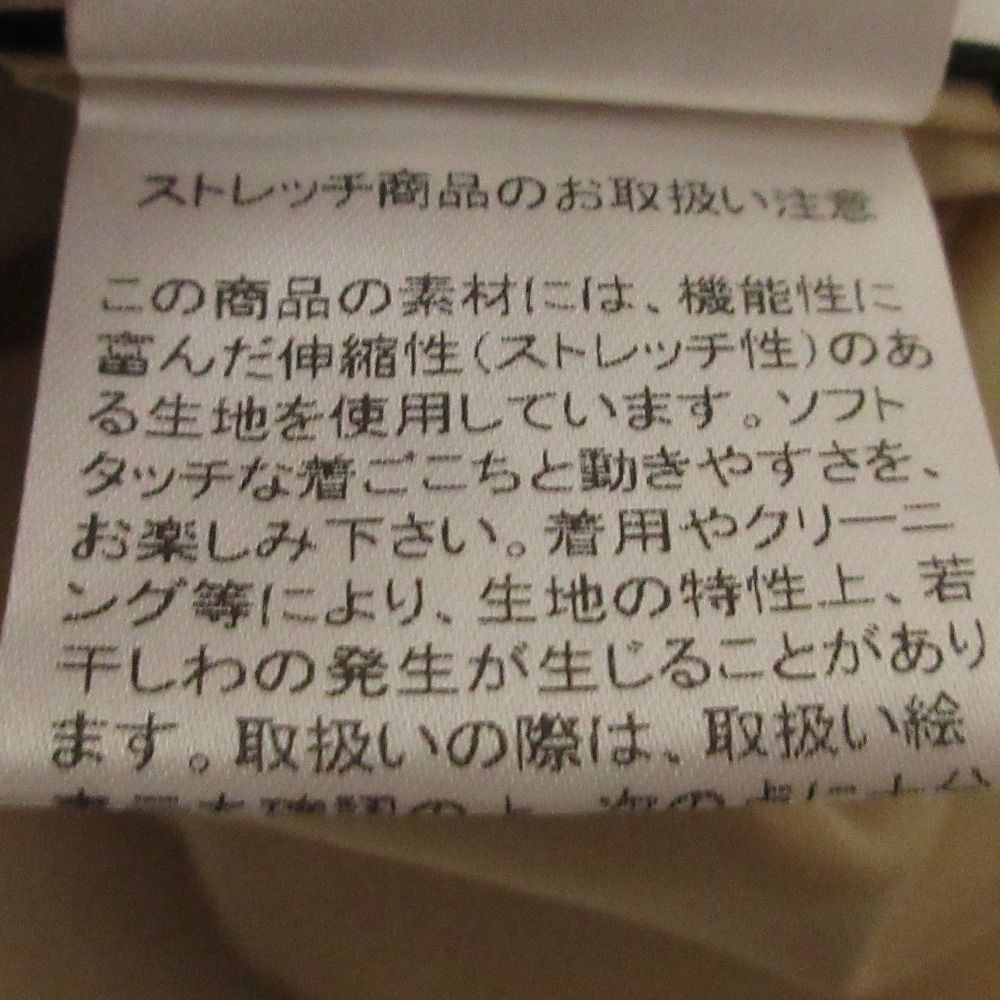 ストレッチ商品のお取扱い注意
この商品の素材には、機能性に
富んだ伸縮性(ストレッチ性)のあ
る生地を使用しています。ソフト
タッチな着ごこちと動きやすさを、
お楽しみ下さい。着用やクリーニ
ング等により、生地の特性上、若
干しわの発生が生じることがあり
ます。取扱いの際は、取扱い絵